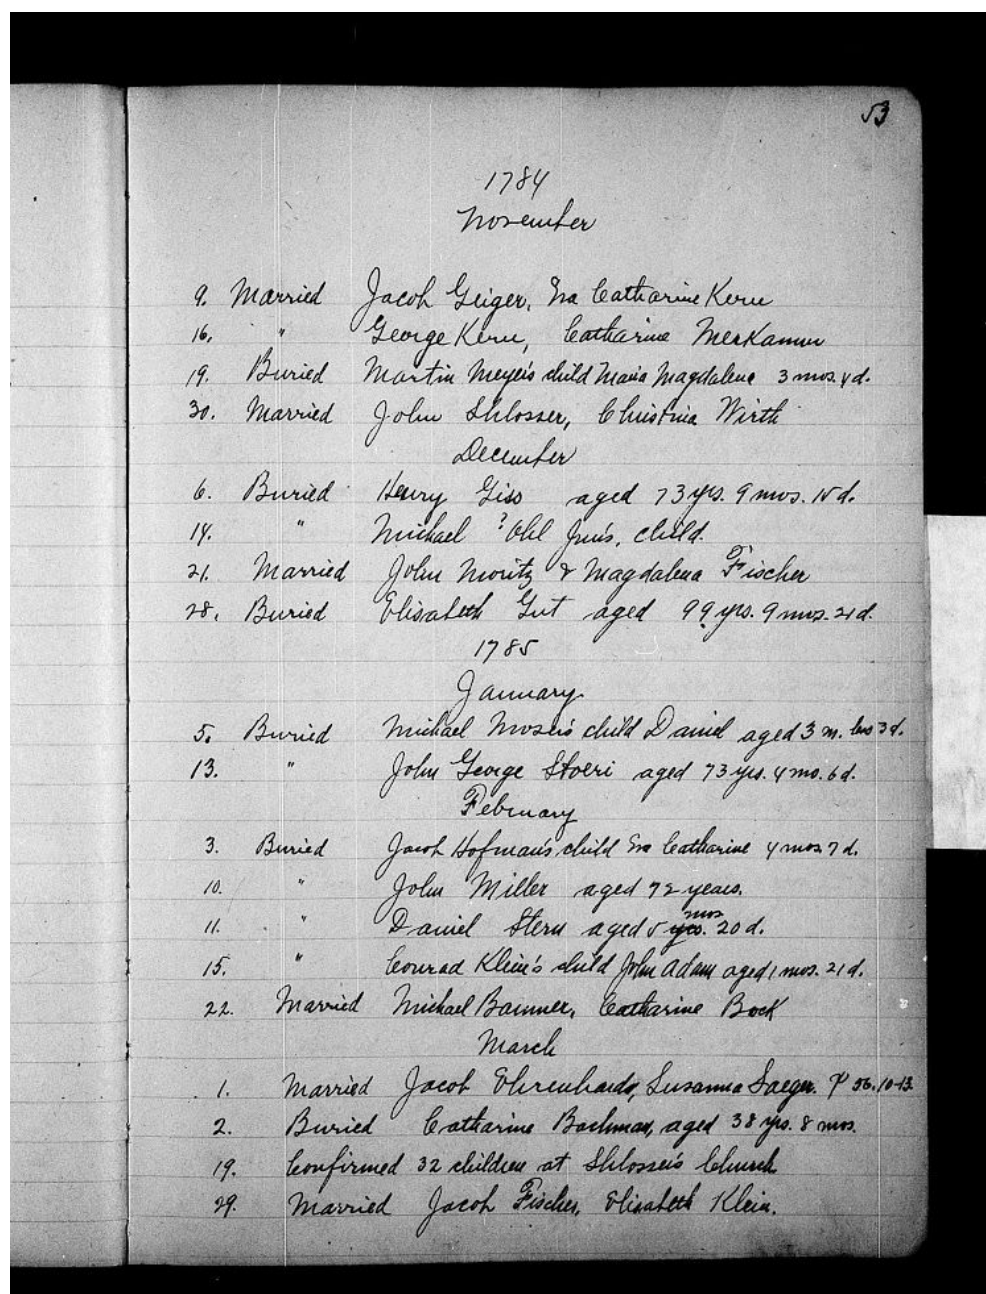 53
1784
November
9. Married Jacob Geiger, Eva Catharine Kern
16. " George Kern, Catharine
19. Buried Martin Meyer's child Maria Magdalena 3 mos. 4 d.
30. Married John Shlosser, Christina Wirth
December
6. Buried Henry Giss aged 73 yrs. 9 mos. 15 d.
14. " Michael ? Ohl Jun's, child.
21. Married John Moritz & Magdalena Fischer
28. Buried Elisabeth Gut aged 99 yrs. 9 mos. 21 d.
1785
January
5. Buried Michael Moser's child Daniel aged 3 m. less 3 d.
13. " John George Stoeri aged 73 yrs. 4 mo. 6 d.
February
3. Buried Jacob Hofman's child Eva Catharine 4 mos. 7 d.
10. " John Miller aged 72 years.
11. " Daniel Stern aged 5 mos 20 d.
15. " Conrad Klein's child John Adam aged 1 mos. 21 d.
22. Married Michael Catharine Bock
March
1. Married Jacob Ehrenhardt, Susanna Saeger. P 56.10-13
2. Buried Catharine Bachman, aged 38 yrs. 8 mos.
19. Confirmed 32 children at Shlosser's Church
29. Married Jacob Fischer, Elisabeth Klein.